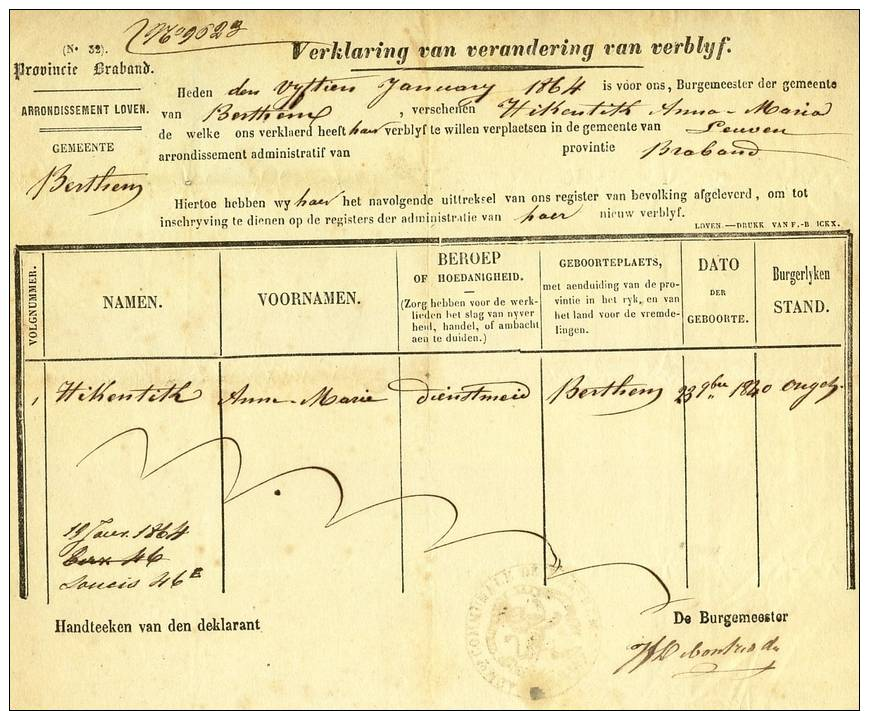 (N° 32).
N° 9623
Verklaring van verandering van verblyf.
Provincie Braband.
ARRONDISSEMENT LOVEN.
GEMEENTE
Berthem
Heden den vyftien January 1864 is voor ons, Burgemeester der gemeente
van Berthem, verschenen Hikentith Anna-Maria
de welke ons verklaerd heeft haer verblyf te willen verplaetsen in de gemeente van Leuven
arrondissement administratif van provintie Braband
Hiertoe hebben wy haer het navolgende uittreksel van ons register van bevolking afgeleverd, om tot
inschryving te dienen op de registers der administratie van haer nieuw verblyf.
LOVEN.—DRUKK VAN F.-B ICKX.
VOLGNUMMER.
NAMEN.
VOORNAMEN.
BEROEP
OF HOEDANIGHEID.
(Zorg hebben voor de werk-
lieden het slag van nyver
heid, handel, of ambacht
aen te duiden.)
GEBOORTEPLAETS,
met aenduiding van de pro-
vintie in het ryk, en van
het land voor de vremde-
lingen.
DATO
DER
GEBOORTE.
Burgerlyken
STAND.
1 Hikentith Anna-Marie dienstmeid Berthem 23 9bre 1840 ongeh.
19 Janv. 1864
46
46 E
Handteeken van den deklarant
De Burgemeester